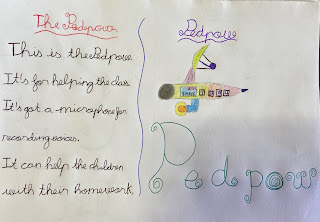 The Pedpow
Pedpow
This is the Pedpow
It's for helping the class
It's got a microphone for
recording voices.
It can help the children
with their homework.
Pedpow